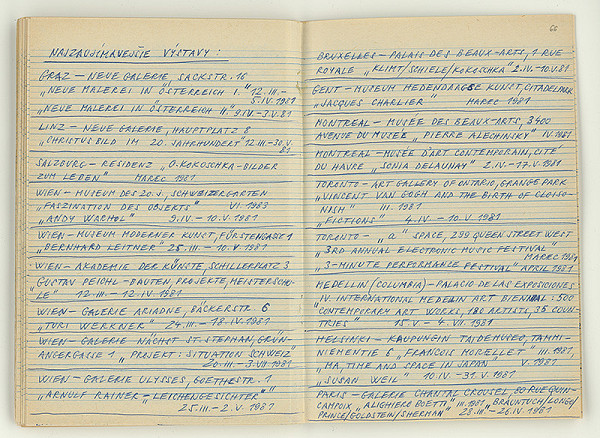 NAJZAUJÍMAVEJŠIE VÝSTAVY :
GRAZ – NEUE GALERIE, SACKSTR. 16
„NEUE MALEREI IN ÖSTERREICH I." 12.III.–
5.IV.1981
„NEUE MALEREI IN ÖSTERREICH II." 9.IV.–3.V.81
LINZ – NEUE GALERIE, HAUPTPLATZ 8
„CHRISTUSBILD IM 20. JAHRHUNDERT" 12.III.–30.V.
81
SALZBURG – RESIDENZ „O. KOKOSCHKA – BILDER
ZUM LEBEN" MAREC 1981
WIEN – MUSEUM DES 20. J. SCHWEIZERGARTEN
„FASZINATION DES OBJEKTS" VI. 1983
„ANDY WARHOL" 9.IV. – 10.V. 1981
WIEN – MUSEUM MODERNER KUNST, FÜRSTENGASSE 1
„BERNHARD LEITNER" 25.III. – 10.V. 1981
WIEN – AKADEMIE DER KÜNSTE, SCHILLERPLATZ 3
„GUSTAV PEICHL – BAUTEN, PROJEKTE, MEISTERSCHU-
LE" 12.III. – 12.IV 1981
WIEN – GALERIE ARIADNE, BÄCKERSTR. 6
„TURI WERKNER" 24.III. – 18.IV. 1981
WIEN – GALERIE NÄCHST ST. STEPHAN, GRÜN-
ANGERGASSE 1 „PROJEKT: SITUATION SCHWEIZ"
20.III. – 3.VII 1981
WIEN – GALERIE ULYSSES, GOETHESTR. 1
„ARNULF RAINER – LEICHENGESICHTER"
25.III. – 2.V. 1981
66
BRUXELLES – PALAIS DES BEAUX-ARTS, 1 RUE
ROYALE „KLIMT/SCHIELE/KOKOSCHKA" 2.IV.–10.V.81
GENT – MUSEUM HEDENDAAGSE KUNST, CITADELPARK
„JACQUES CHARLIER" MAREC 1981
MONTREAL – MUSÉE DES BEAUX-ARTS, 3400
AVENUE DU MUSÉE „PIERRE ALECHINSKY" IV. 1981
MONTREAL – MUSÉE D'ART CONTEMPORAIN, CITÉ
DU HAVRE „SONIA DELAUNAY" 2.IV. – 17.V. 1981
TORONTO – ART GALLERY OF ONTARIO, GRANGE PARK
„VINCENT VAN GOGH AND THE BIRTH OF CLOISO-
NISM" IV. 1981
„FICTIONS" 4.IV. – 10.V. 1981
TORONTO – „a" SPACE, 299 QUEEN STREET WEST
„3RD ANNUAL ELECTRONIC MUSIC FESTIVAL"
MAREC 1981
„3-MINUTE PERFORMANCE FESTIVAL" APRIL 1981
MEDELLIN (COLUMBIA) – PALACIO DE LAS EXPOSICIONES
„IV. INTERNATIONAL MEDELIN ART BIENNAL : 500
CONTEMPORARY ART WORKS, 180 ARTISTS, 35 COUN-
TRIES" 15.V. – 4.VII. 1981
HELSINKI – KAUPUNGIN TAIDEMUSEO, TAMMI-
NIEMENTIE 6 „FRANCOIS MORELLET" III. 1981
„MA, TIME AND SPACE IN JAPAN" V. 1981
„SUSAN WEIL" 10.IV. – 31.V. 1981
PARIS – GALERIE CHANTAL CROUSEL, 80 RUE QUIN-
CAMPOIX „ALIGHIERO BOETTI" III. 1981, „BRAUNTUCH/LONGO/
PRINCE/GOLDSTEIN/SHERMAN" 28.III. – 26.IV. 1981